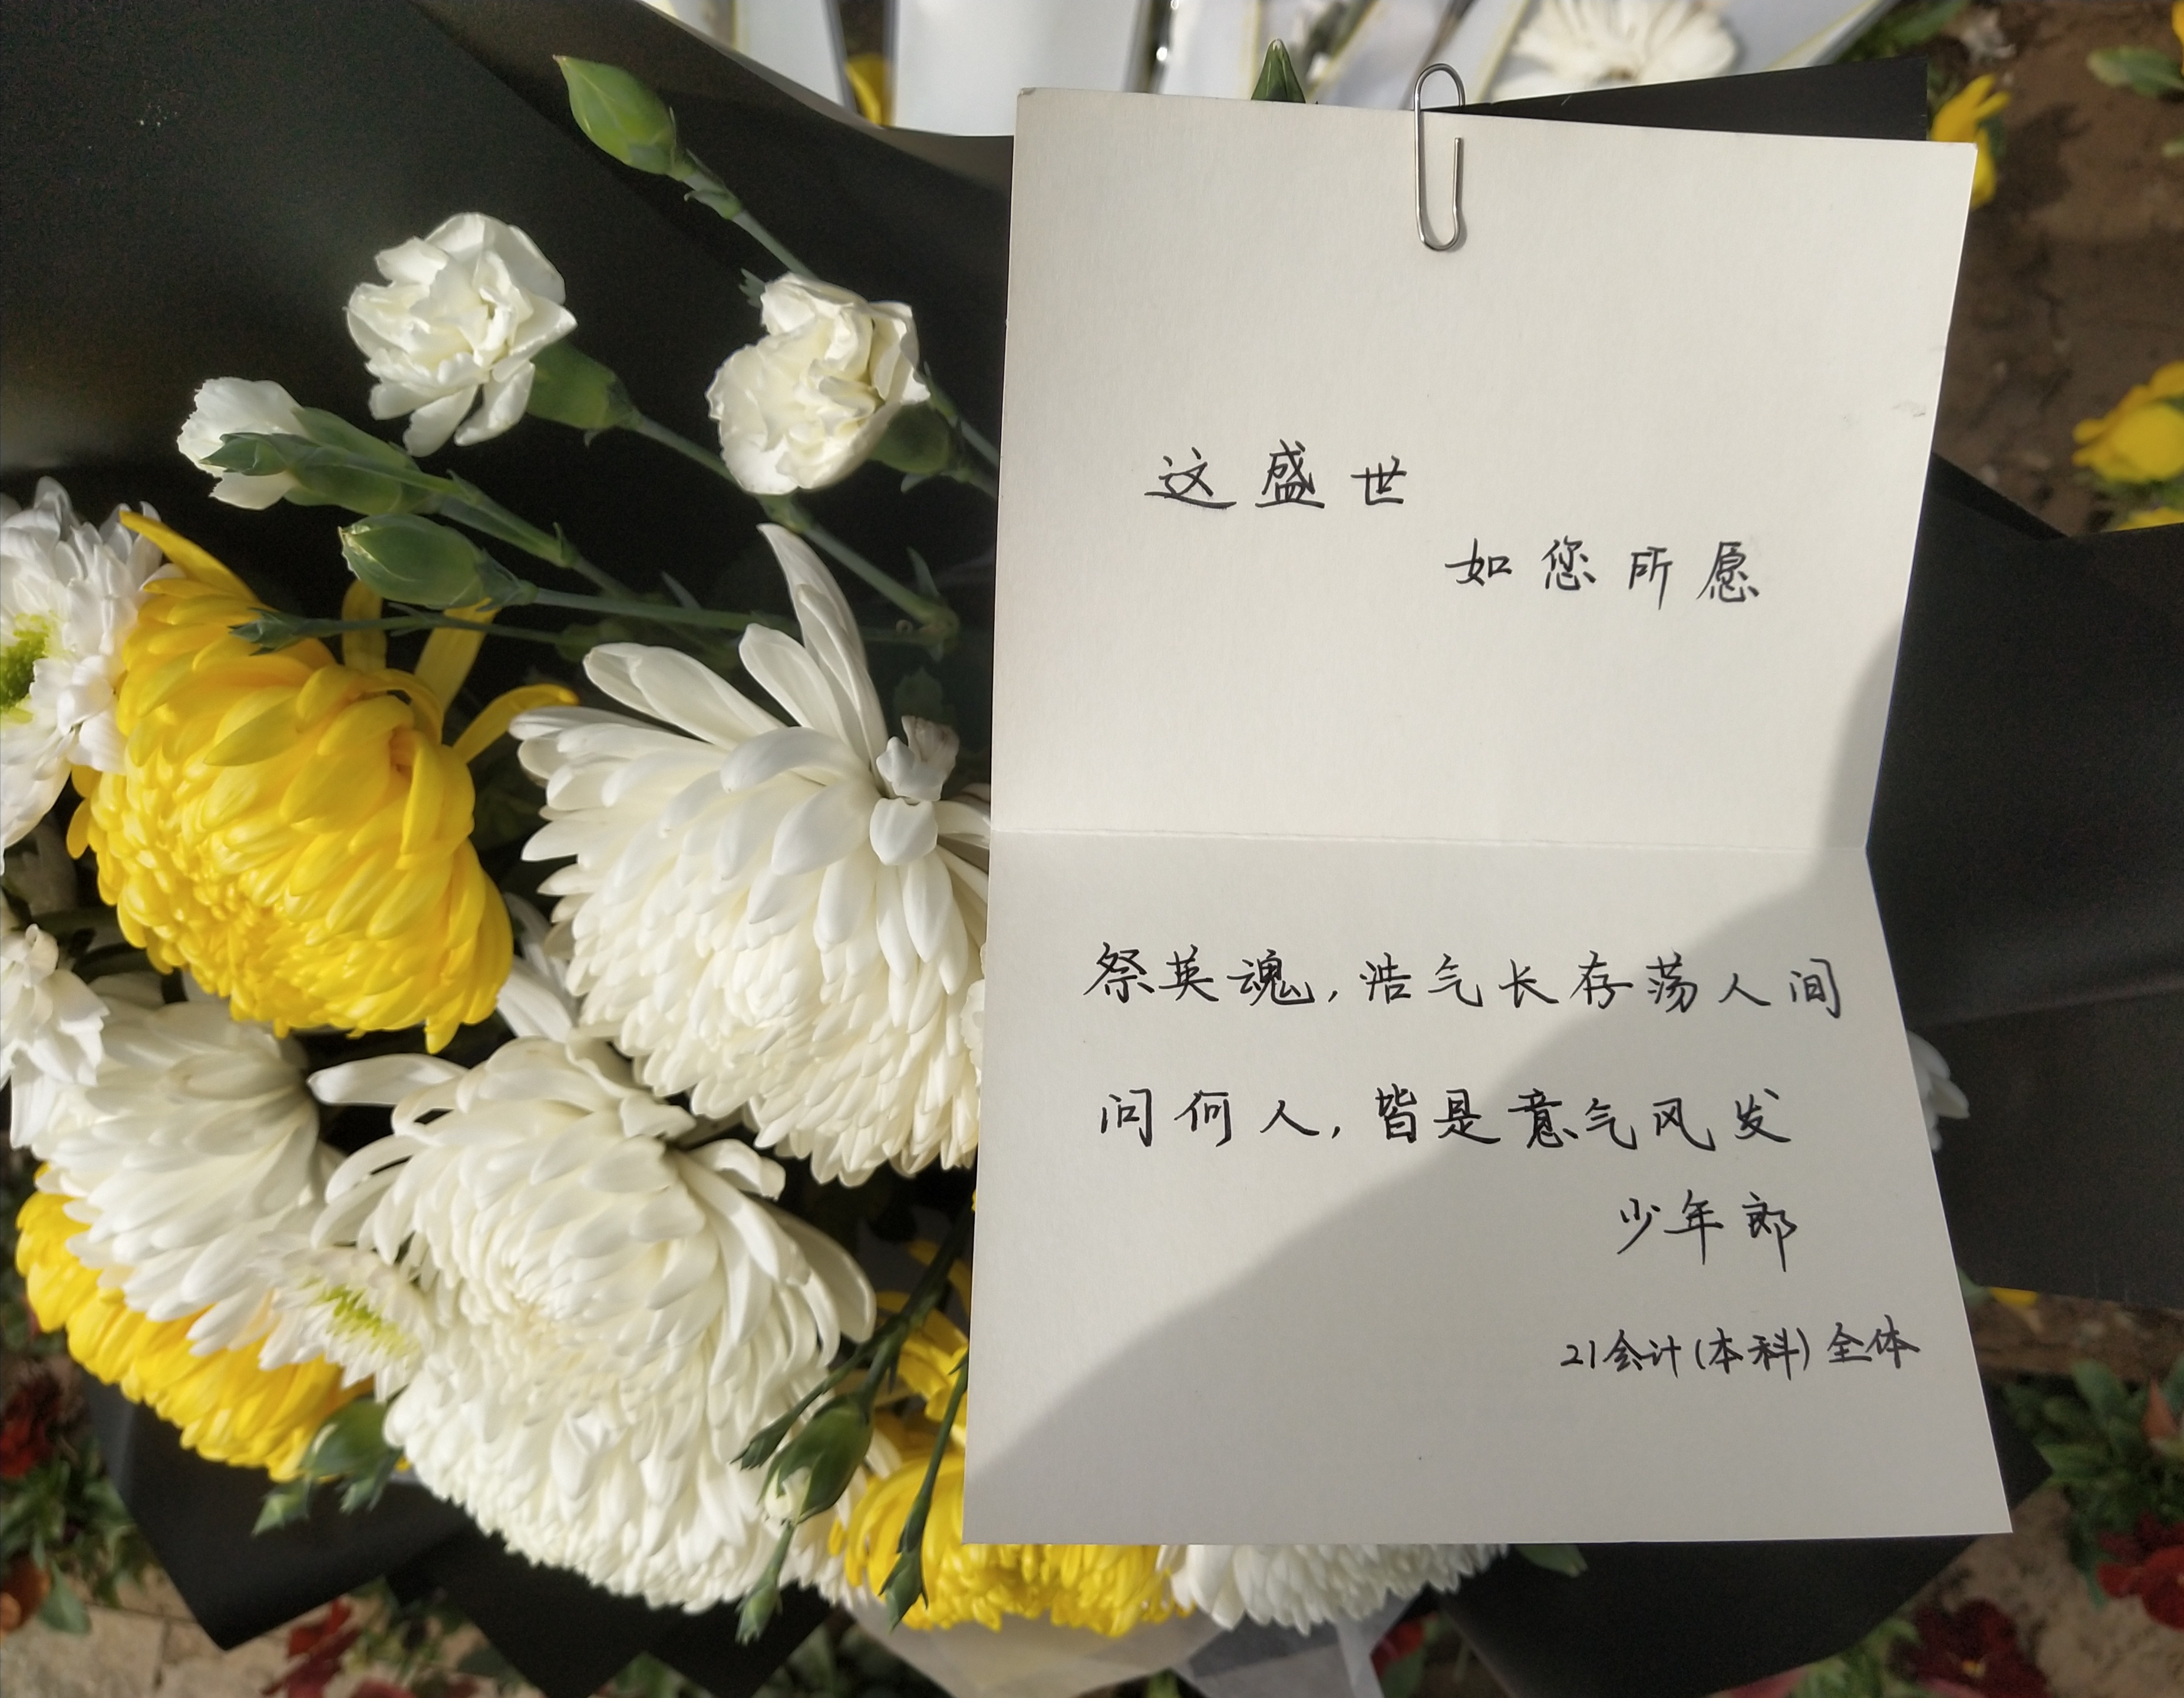 这盛世
如您所愿
祭英魂,浩气长存荡人间
问何人,皆是意气风发
少年郎
21会计(本科)全体